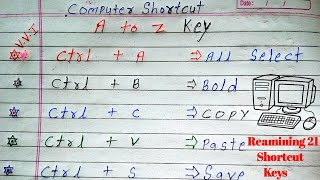 Computer Shortcut
Date: / /
V.V.I
A to Z Key
Ctrl + A ⇒ All Select
Ctrl + B ⇒ Bold
Ctrl + C ⇒ COPY
Ctrl + V ⇒ Paste
Ctrl + S ⇒ Save
Reamining 21
Shortcut
Keys